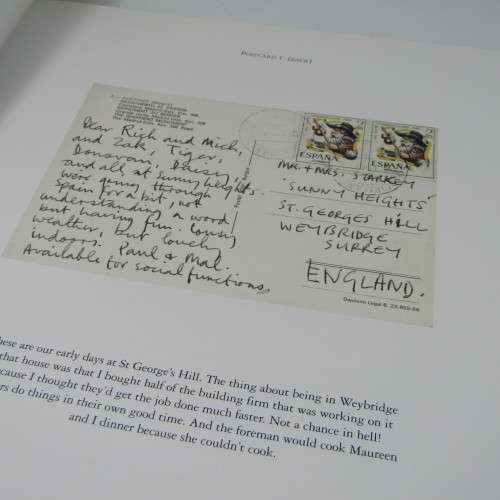 POSTCARD 1 [BACK]
Dear Rich and Mich,
and Zak, Tiger,
Donovan, Daisy,
and all at sunny heights.
were going through
Spain for a bit, not
understanding a word
but having fun. Lousy
weather, but lovely
indoors. Paul & Mal.
Available for social functions.
ESPAÑA
ESPAÑA
MR + MRS. STARKEY
'SUNNY HEIGHTS'
ST. GEORGES HILL
WEYBRIDGE
SURREY
ENGLAND.
Depósito Legal B.
hese are our early days at St George's Hill. The thing about being in Weybridge
that house was that I bought half of the building firm that was working on it
cause I thought they'd get the job done much faster. Not a chance in hell!
rs do things in their own good time. And the foreman would cook Maureen
and I dinner because she couldn't cook.